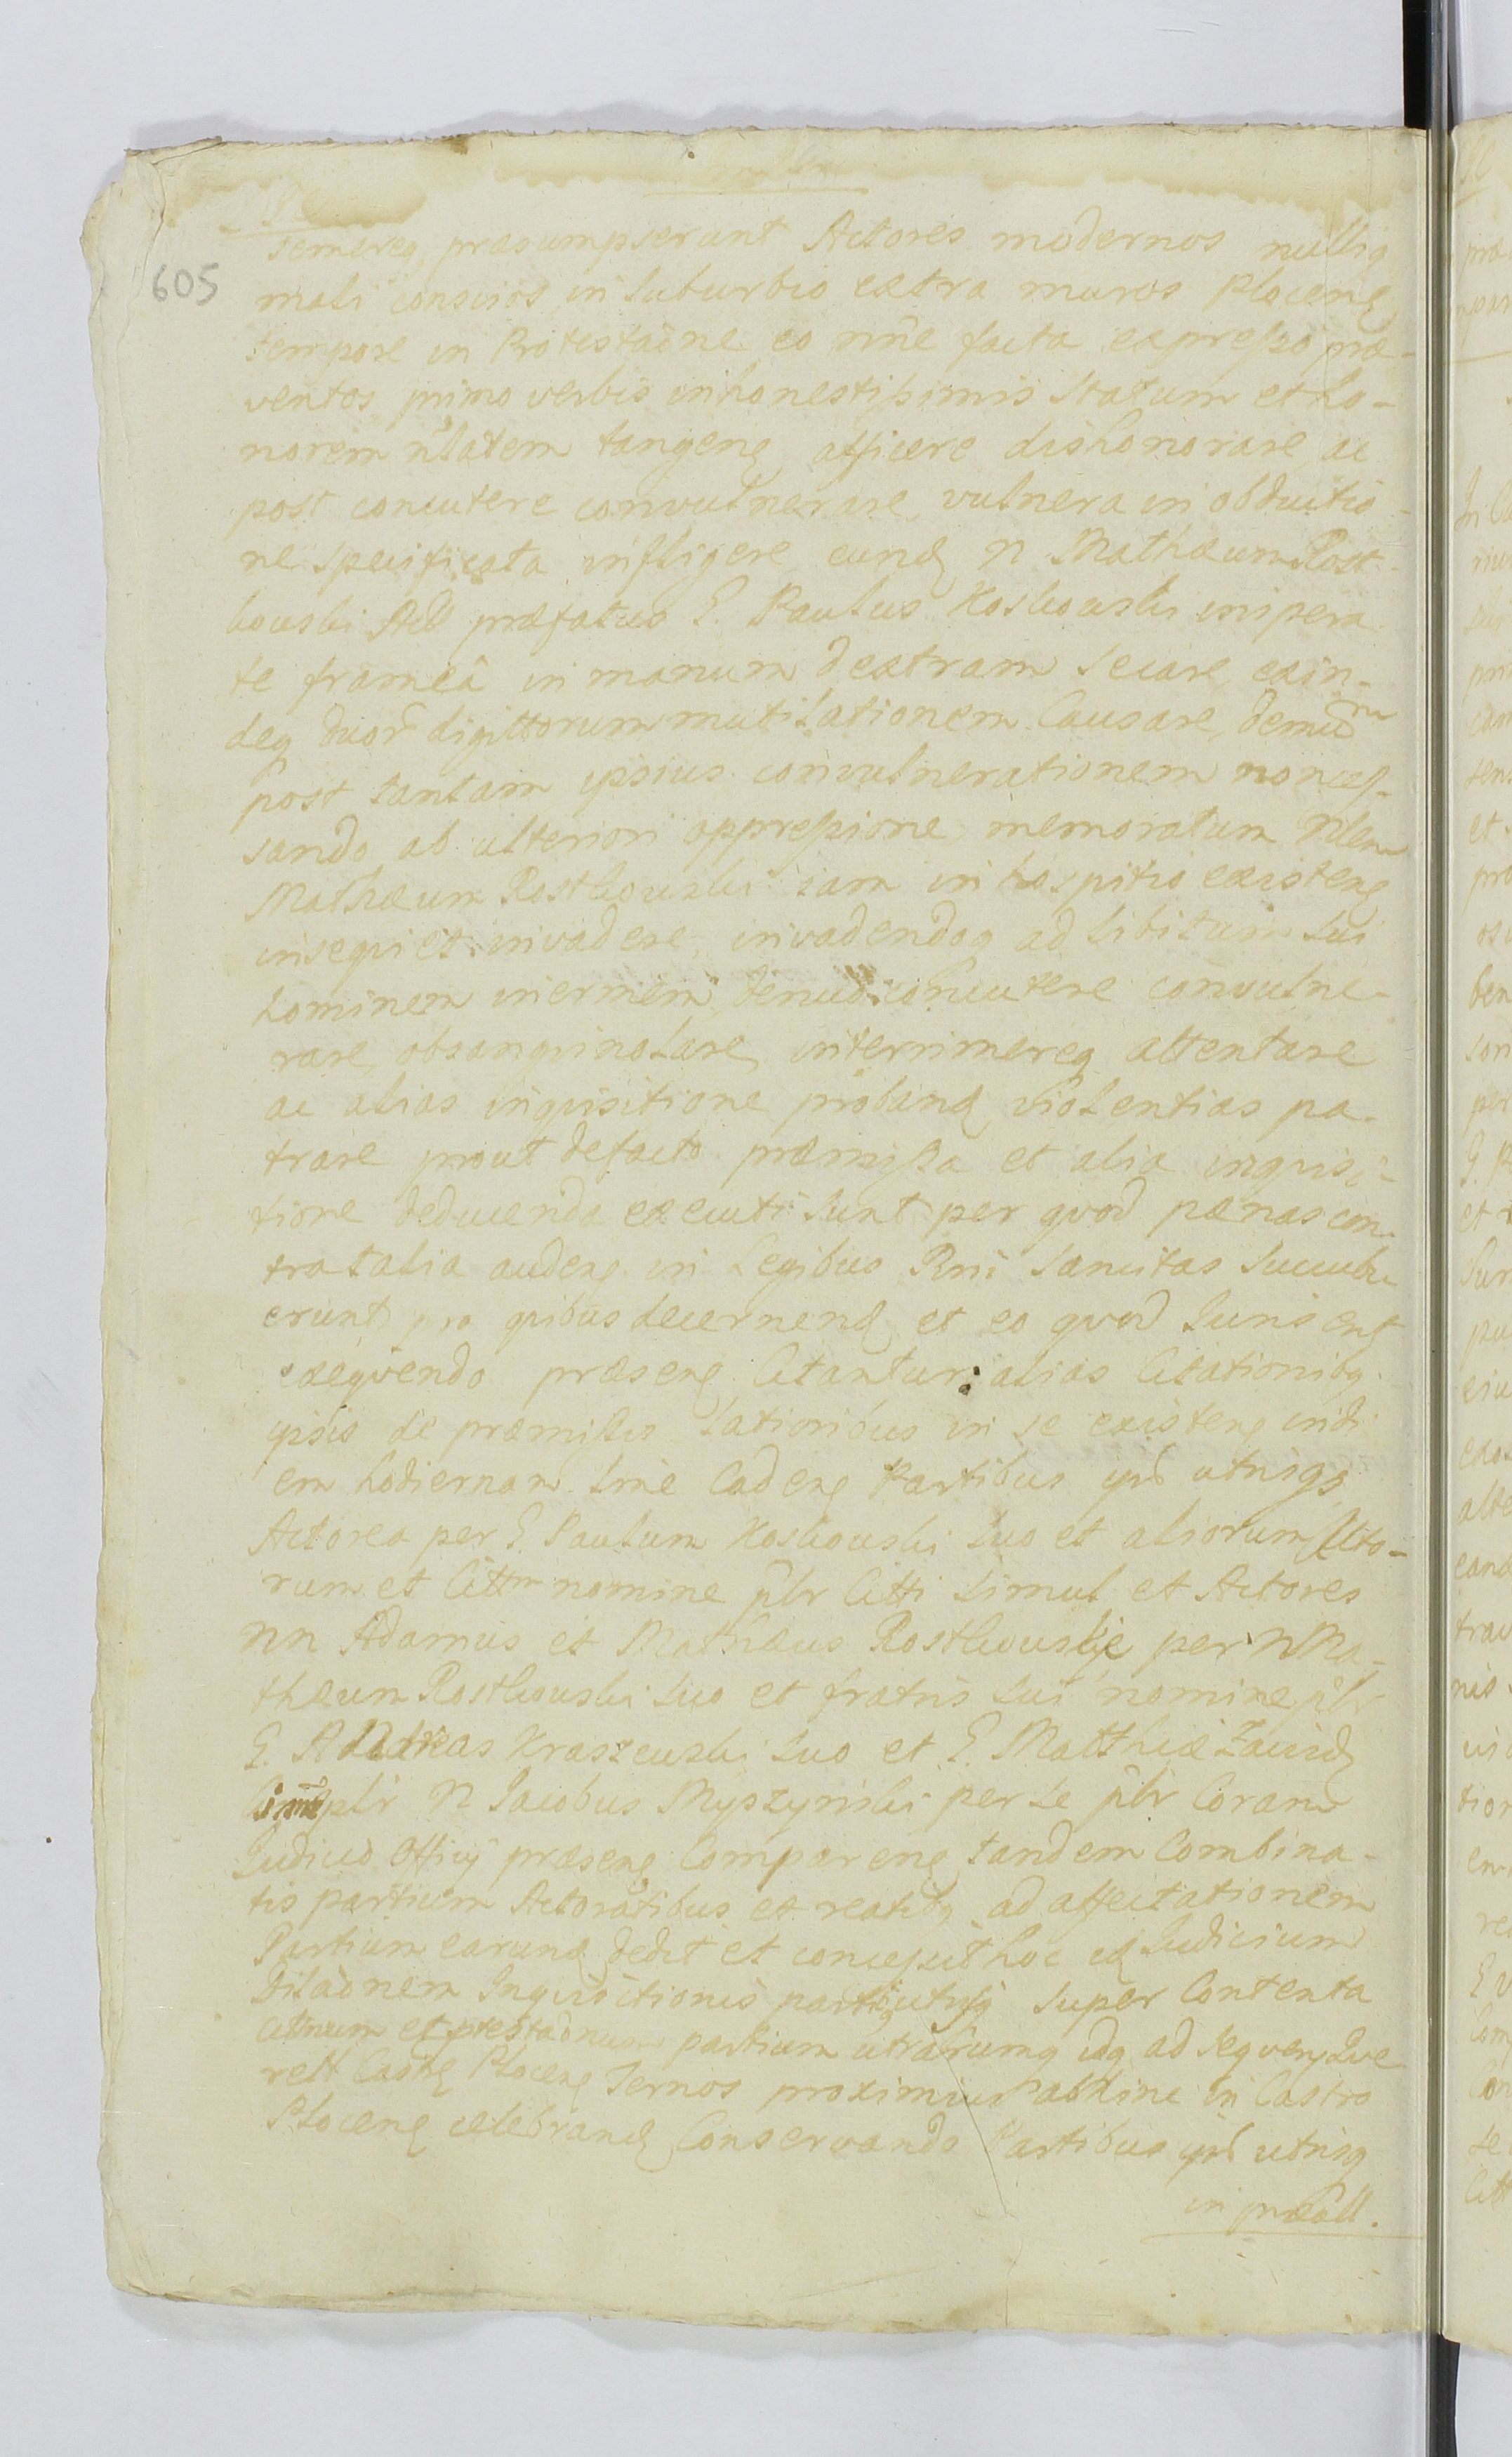 605
temereq, præsumpserunt Actores modernos nulliq
mali conscios in suburbio extra muros Plocenẹ
tempore in Protestaōne eo nn̄e facta expresso præ-
ventos primo verbis inhonestissimis statum et ho-
norem nlatem tangenẹ afficere dishonorare, ac
post concutere convulnerare, vulnera in obductio-
ne specificata infligere, eunḍ N Mathæum Rost-
kowski Act præfatus G. Paulus Koskowski vi pera
te frameâ in manum dextram secare, exin-
deq duor̄ digittorum mutilationem Causare, demu̅m
post tantam ipsius convulnerationem non ces-
sando ab ulteriori oppressione memoratum Nlem
Mathæum Rostkowski iam in hospitio existenẹ
insequi et invadere, invadendoq ad libitum sui
hominem inermem denuo concutere convulne-
rare, obsanguinolare, interrimereq attentare
ac alias inquisitione probanḍ violentias pa-
trare prout de facto præmissa et alia inquisi-
tione deducenda executi sunt per quod pænas con-
tra talia audenẹ in Legibus Rni sancitas succubu
erunt pro quibus decernenḍ et eo quod Juris erit
exequendo præsenẹ Citantur: alias Citationibq
ipsis de præmissis latioribus in se existenẹ in di
em hodiernam sine Cadenẹ Partibus ipsis utrisq
Actorea per G. Paulum Koskowski suo et aliorum Acto-
rum et Citt̄m nomine plr Citti simul et Actores
NN Adamus et Mathæus Rostkowskie per N Ma-
thæum Rostkowski suo et fratris sui nomine plr
G. Andreas Kraszewski suo et G. Matthiæ Zawidz
nn̄e plr N Jacobus Myszynski per se plr Coram
Judicio Officij præsenẹ Comparenẹ, tandem Combina-
tis partium Actoratibus et reatibq ad affectationem
Partium earunḍ dedit et concessit hoc eḍ Judicium
Dilaōnem Inquisitionis partibq utrisq super Contenta
Citnum et Ptestaōnum partium utrarumq idq ad sequenẹ Que
rell Castr̄ Plocenẹ Ternos proximius abhinc in Castro
Plocenẹ celebranḍ Conservando Partibus ipsis utrisq
in præall.